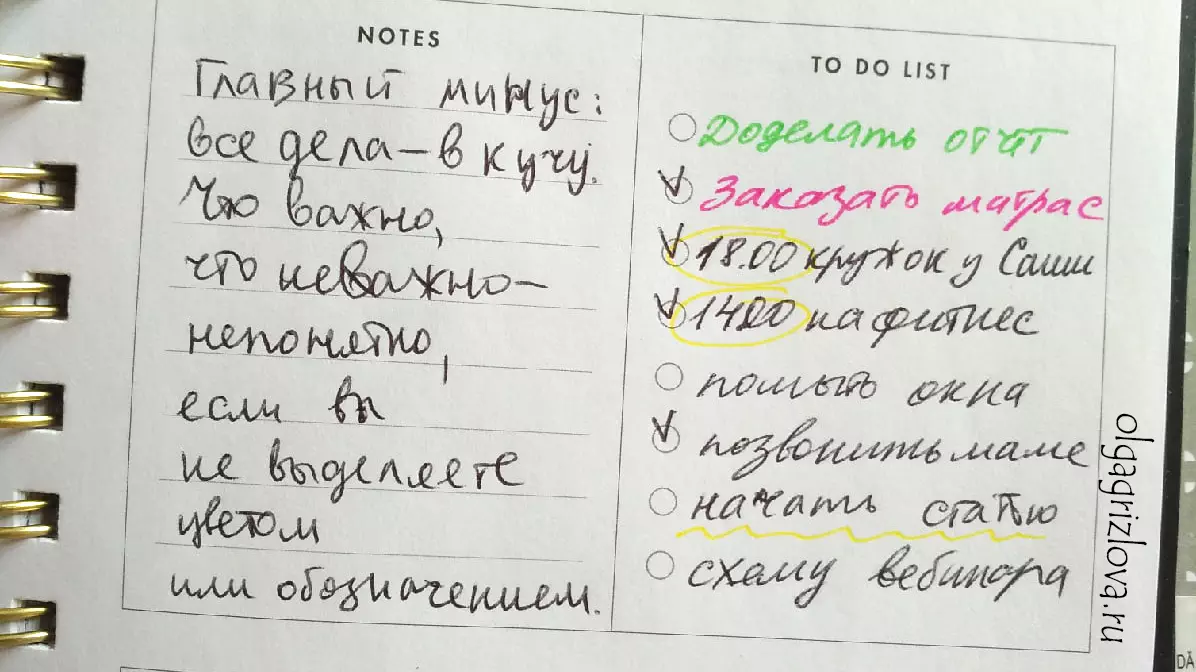 NOTES
Главный минус:
все дела – в кучу.
Что важно,
что неважно –
непонятно,
если вы
не выделяете
цветом
или обозначением.
TO DO LIST
Доделать отчёт
Заказать матрас
18.00 кружок у Саши
14.00 на фитнес
помыть окна
позвонить маме
начать статью
схему вебинара
olgagrizlova.ru
DA